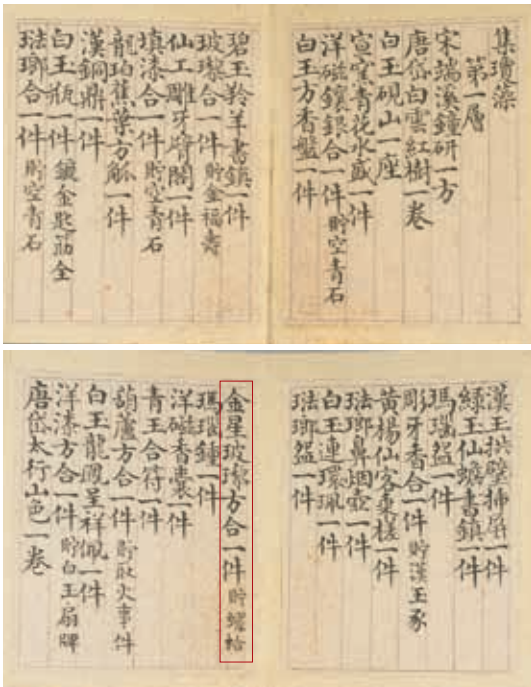 集瓊藻
第一層
宋端溪鐘硏一方
唐岱白雲紅樹一卷
白玉硯山一座
宣窑青花水盛一件
洋磁鑲銀合一件 貯空青石
白玉方香盤一件
碧玉羚羊書鎮一件
玻瓈合一件 貯金福壽
仙工雕牙臂閣一件
填漆合一件 貯空青石
龍珀蕉葉方觚一件
漢銅鼎一件
白玉瓶一件 鍍金匙筯全
琺瑯合一件 貯空青石
漢玉拱璧揷屏一件
綠玉仙蟾書鎮一件
瑪瑙盌一件
彫牙香合一件 貯漢玉豕
黃楊仙客棗槎一件
琺瑯鼻烟壺一件
白玉連環珮一件
琺瑯盌一件
金星玻瓈方合一件 貯蟾蛤
瑪瑙鐘一件
洋磁香囊一件
青玉合符一件
葫蘆方合一件 貯取火事件
白玉龍鳳呈祥佩一件
洋漆方合一件 貯白玉扇牌
唐岱太行山色一卷